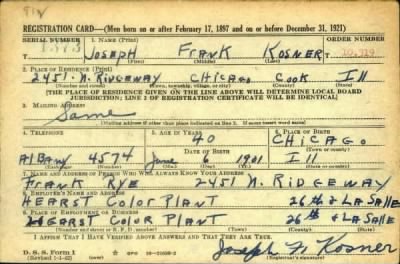 REGISTRATION CARD—(Men born on or after February 17, 1897 and on or before December 31, 1921)
SERIAL NUMBER 1. NAME (Print) ORDER NUMBER
JOSEPH FRANK KOSNER
(First) (Middle) (Last)
2. PLACE OF RESIDENCE (Print)
2451 N. RIDGEWAY CHICAGO COOK Ill
(Number and street) (Town, township, village, or city) (County) (State)
[THE PLACE OF RESIDENCE GIVEN ON THE LINE ABOVE WILL DETERMINE LOCAL BOARD
JURISDICTION; LINE 2 OF REGISTRATION CERTIFICATE WILL BE IDENTICAL]
3. MAILING ADDRESS
Same
[Mailing address if other than place indicated on line 2. If same insert word same]
4. TELEPHONE 5. AGE IN YEARS 6. PLACE OF BIRTH
40 CHICAGO
DATE OF BIRTH (Town or county)
ALBANY 4574 June 6 1901 Ill
(Mo.) (Day) (Yr.) (State or country)
7. NAME AND ADDRESS OF PERSON WHO WILL ALWAYS KNOW YOUR ADDRESS
FRANK 2451 N. RIDGEWAY
8. EMPLOYER'S NAME AND ADDRESS
HEARST COLOR PLANT 26th & LA SALLE
9. PLACE OF EMPLOYMENT OR BUSINESS
HEARST COLOR PLANT 26th & LA SALLE
(Number and street or R. F. D. number) (Town) (County) (State)
I AFFIRM THAT I HAVE VERIFIED ABOVE ANSWERS AND THAT THEY ARE TRUE.
D. S. S. Form 1
(Revised 1-1-42) (over) GPO
Joseph F Kosner
(Registrant's signature)